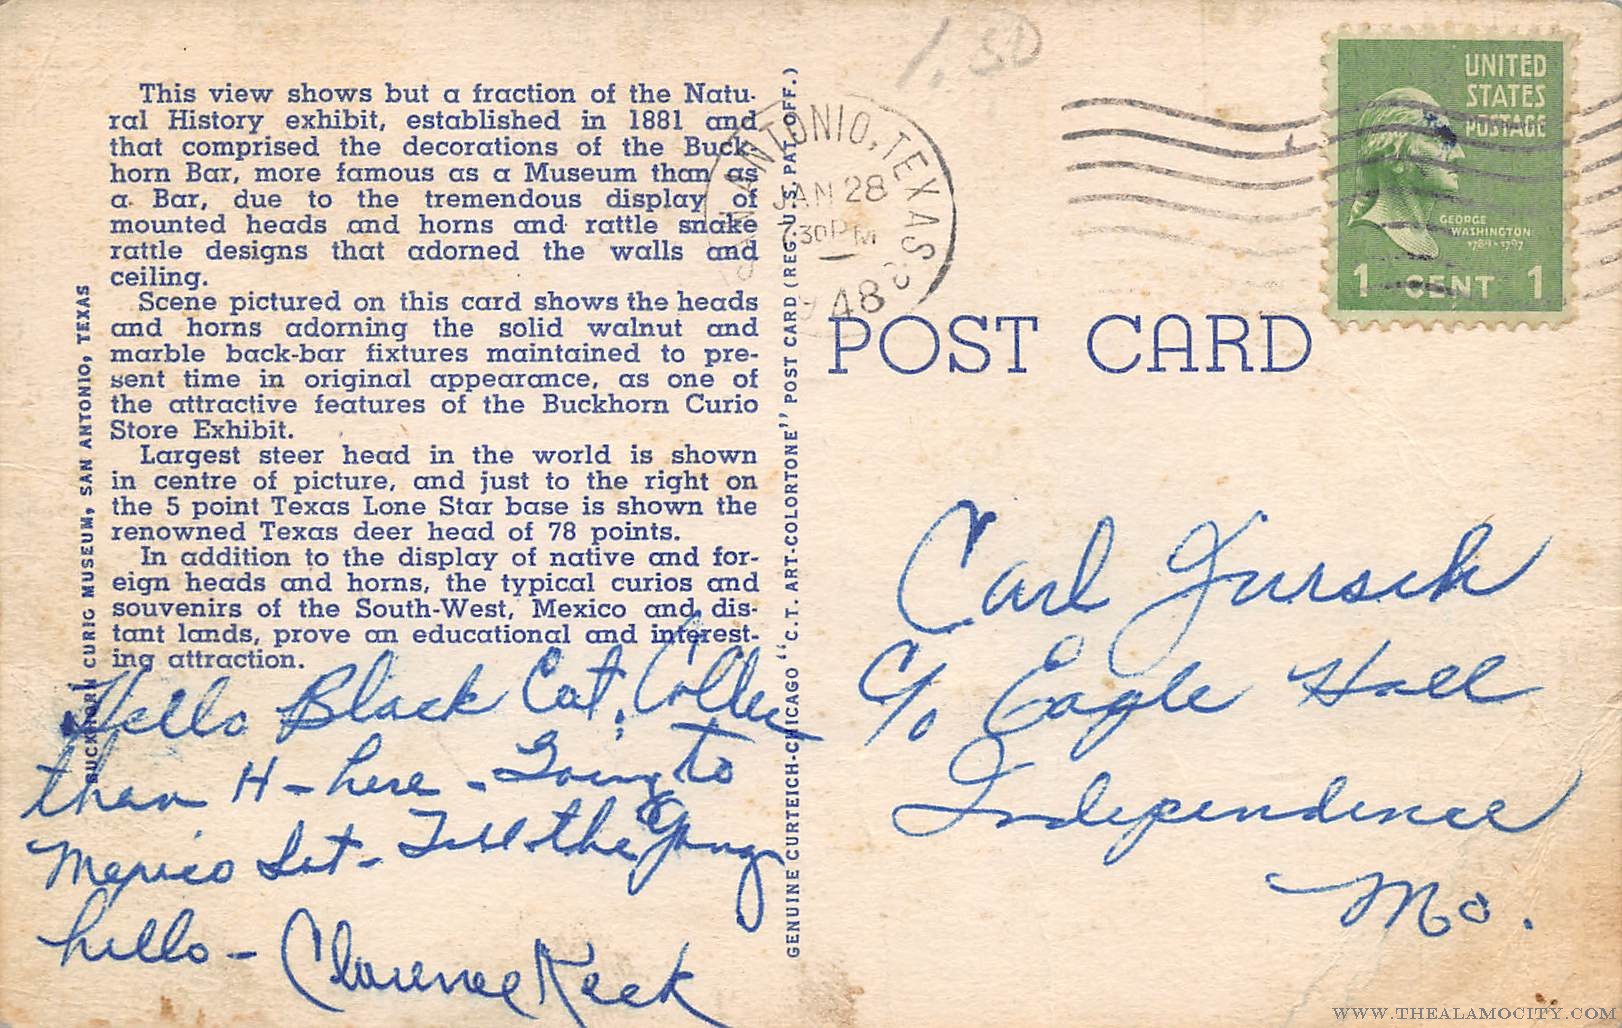 This view shows but a fraction of the Natu-
ral History exhibit, established in 1881 and
that comprised the decorations of the Buck-
horn Bar, more famous as a Museum than as
a Bar, due to the tremendous display of
mounted heads and horns and rattle snake
rattle designs that adorned the walls and
ceiling.
Scene pictured on this card shows the heads
and horns adorning the solid walnut and
marble back-bar fixtures maintained to pre-
sent time in original appearance, as one of
the attractive features of the Buckhorn Curio
Store Exhibit.
Largest steer head in the world is shown
in centre of picture, and just to the right on
the 5 point Texas Lone Star base is shown the
renowned Texas deer head of 78 points.
In addition to the display of native and for-
eign heads and horns, the typical curios and
souvenirs of the South-West, Mexico and dis-
tant lands, prove an educational and interest-
ing attraction.
BUCKHORN CURIO MUSEUM, SAN ANTONIO, TEXAS
Hello Black Cat. Coller
than H - here - Going to
Mexico Sat - Tell the Gang
hello - Clarence Keck
GENUINE CURTEICH-CHICAGO "C.T. ART-COLORTONE" POST CARD (REG. U.S. PAT. OFF.)
1.50
SAN ANTONIO, TEXAS
JAN 28
7:30 PM
1948
UNITED
STATES
POSTAGE
GEORGE
WASHINGTON
1789-1797
1 CENT 1
POST CARD
Carl
c/o Eagle Hall
Independence
Mo.
WWW.THEALAMOCITY.COM